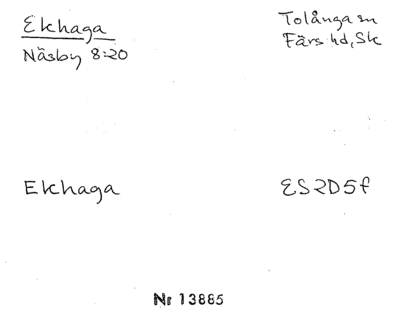 Ekhaga
Näsby 8:20
Tolånga sn
Färs hd, Sk
Ekhaga
ES2D5f
Nr 13885